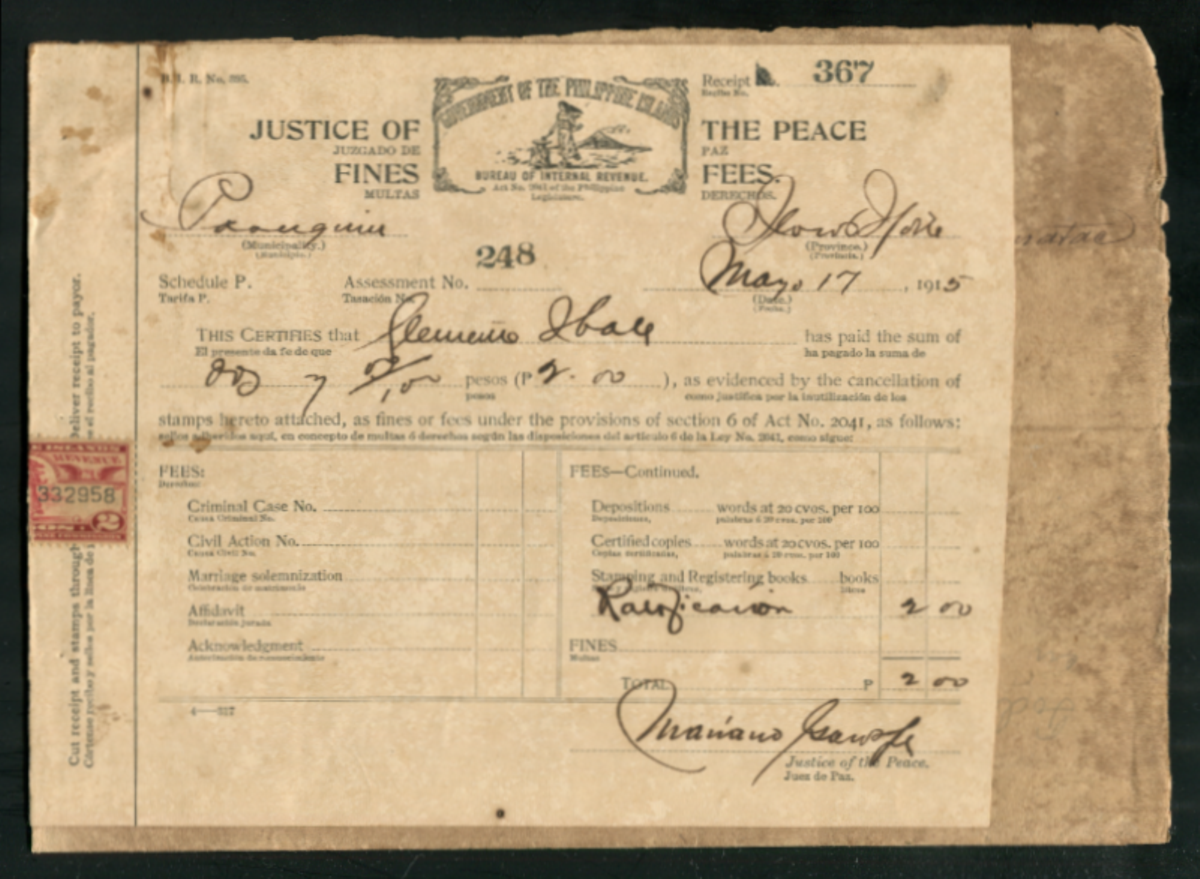 B. I. R. No. 895.
Receipt No. 367
Recibo No.
GOVERNMENT OF THE PHILIPPINE ISLANDS
JUSTICE OF THE PEACE
JUZGADO DE PAZ
FINES FEES.
MULTAS DERECHOS.
BUREAU OF INTERNAL REVENUE.
Act No. 2041 of the Philippine
Legislature.
Paouquin Ilocos Norte
(Municipality.) (Province.)
(Municipio.) (Provincia.)
248
Schedule P. Assessment No. Mayo 17, 1915
Tarifa P. Tasación No. (Date.)
(Fecha.)
THIS CERTIFIES that has paid the sum of
El presente da fe de que ha pagado la suma de
dos y 00/100 pesos (P 2.00), as evidenced by the cancellation of
pesos como justifica por la inutilización de los
stamps hereto attached, as fines or fees under the provisions of section 6 of Act No. 2041, as follows:
sellos adheridos aquí, en concepto de multas ó derechos según las disposiciones del artículo 6 de la Ley No. 2041, como sigue:
FEES: FEES—Continued.
Derechos:
Criminal Case No. Depositions words at 20 cvos. per 100
Causa Criminal No. Deposiciones, palabras á 20 cvos. per 100
Civil Action No. Certified copies words at 20 cvos. per 100
Causa Civil No. Copias certificadas, palabras á 20 cvos. per 100
Marriage solemnization Stamping and Registering books books
Celebración de matrimonio libros
Affidavit Ratificación 2 00
Declaración jurada
Acknowledgment FINES
Multas
TOTAL P 2 00
4—327
Mariano
Justice of the Peace.
Juez de Paz.
Cut receipt and stamps through
deliver receipt to payor.
Córtense recibo y sellos por la línea de
el recibo al pagador.
ISLANDS
REVENUE
332958
2